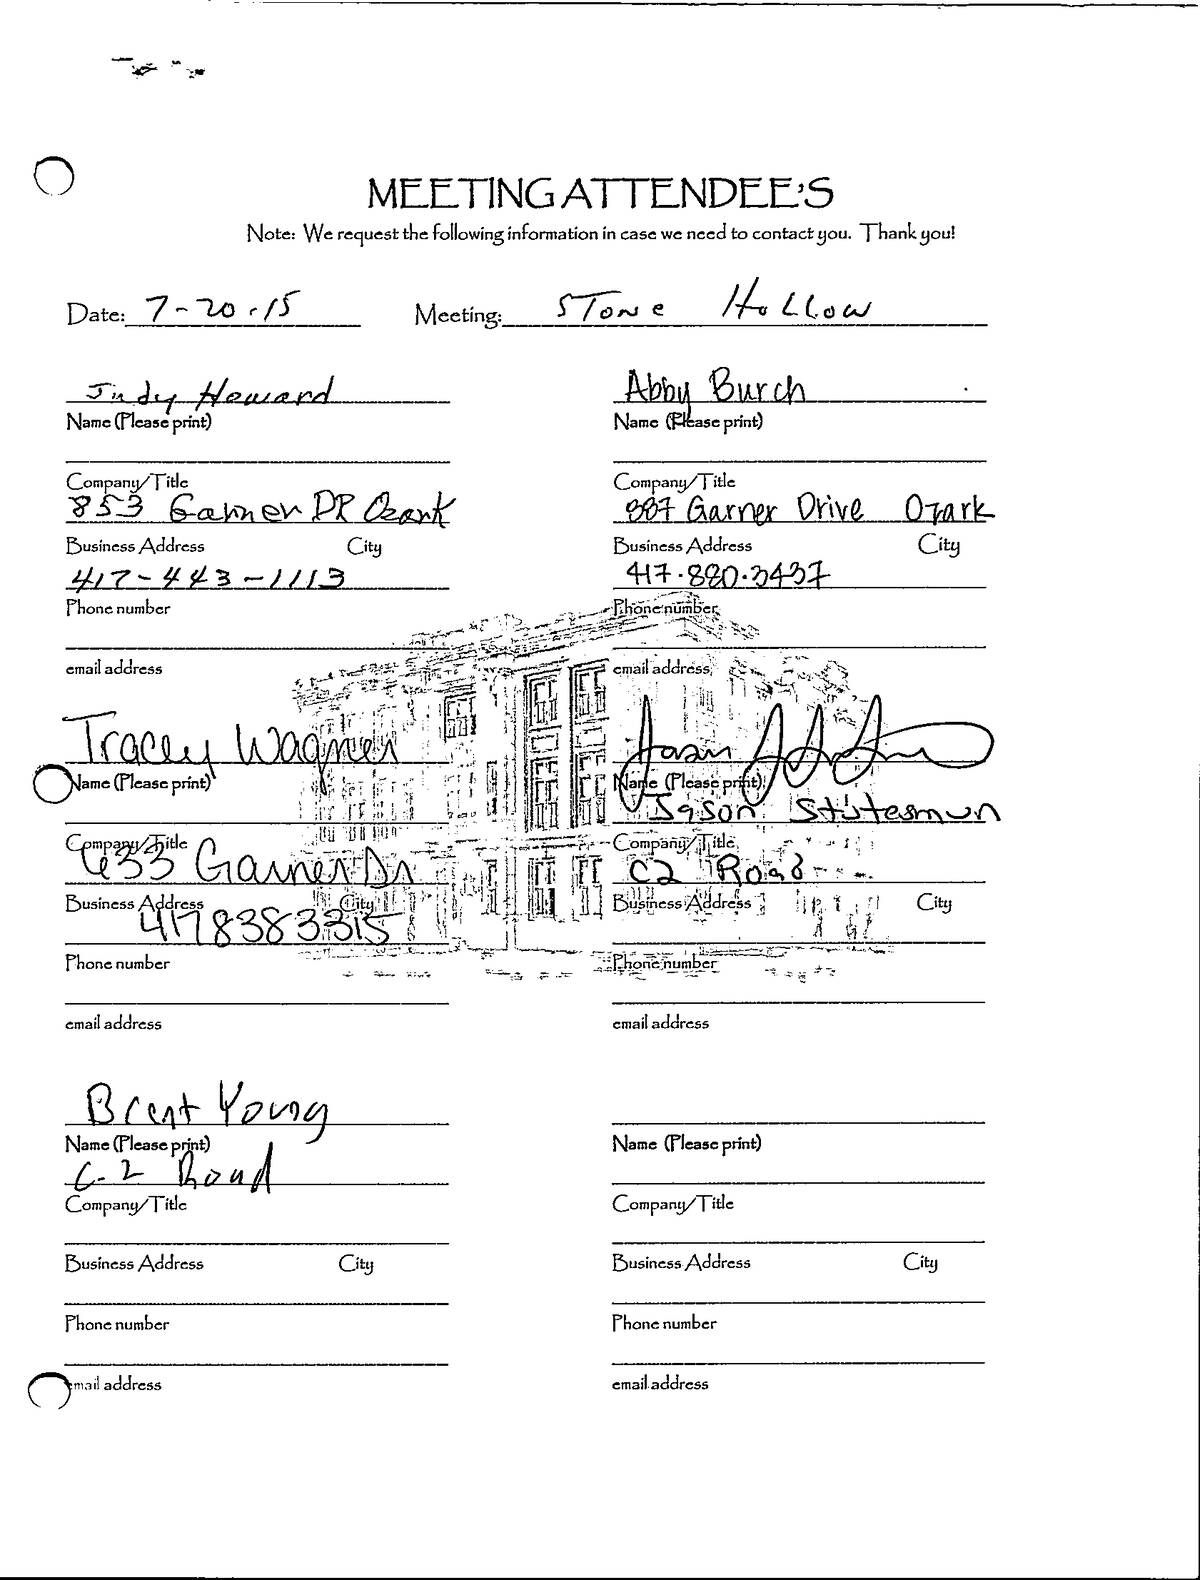 MEETING ATTENDEE'S
Note: We request the following information in case we need to contact you. Thank you!
Date: 7-20-15 Meeting: STone HoLLow
Judy Howard
Name (Please print)
Company/Title
853 Garner DR Ozark
Business Address City
417-443-1113
Phone number
email address
Abby Burch
Name (Please print)
Company/Title
887 Garner Drive Ozark
Business Address City
417.880.3437
Phone number
email address
Tracey Wagner
Name (Please print)
Company/Title
633 Garner Dr
Business Address City
4178383315
Phone number
email address
Jason
Name (Please print)
Jason Statesman
Company/Title
C2 Road
Business Address City
Phone number
email address
Brent Young
Name (Please print)
C-2 Road
Company/Title
Business Address City
Phone number
email address
Name (Please print)
Company/Title
Business Address City
Phone number
email address